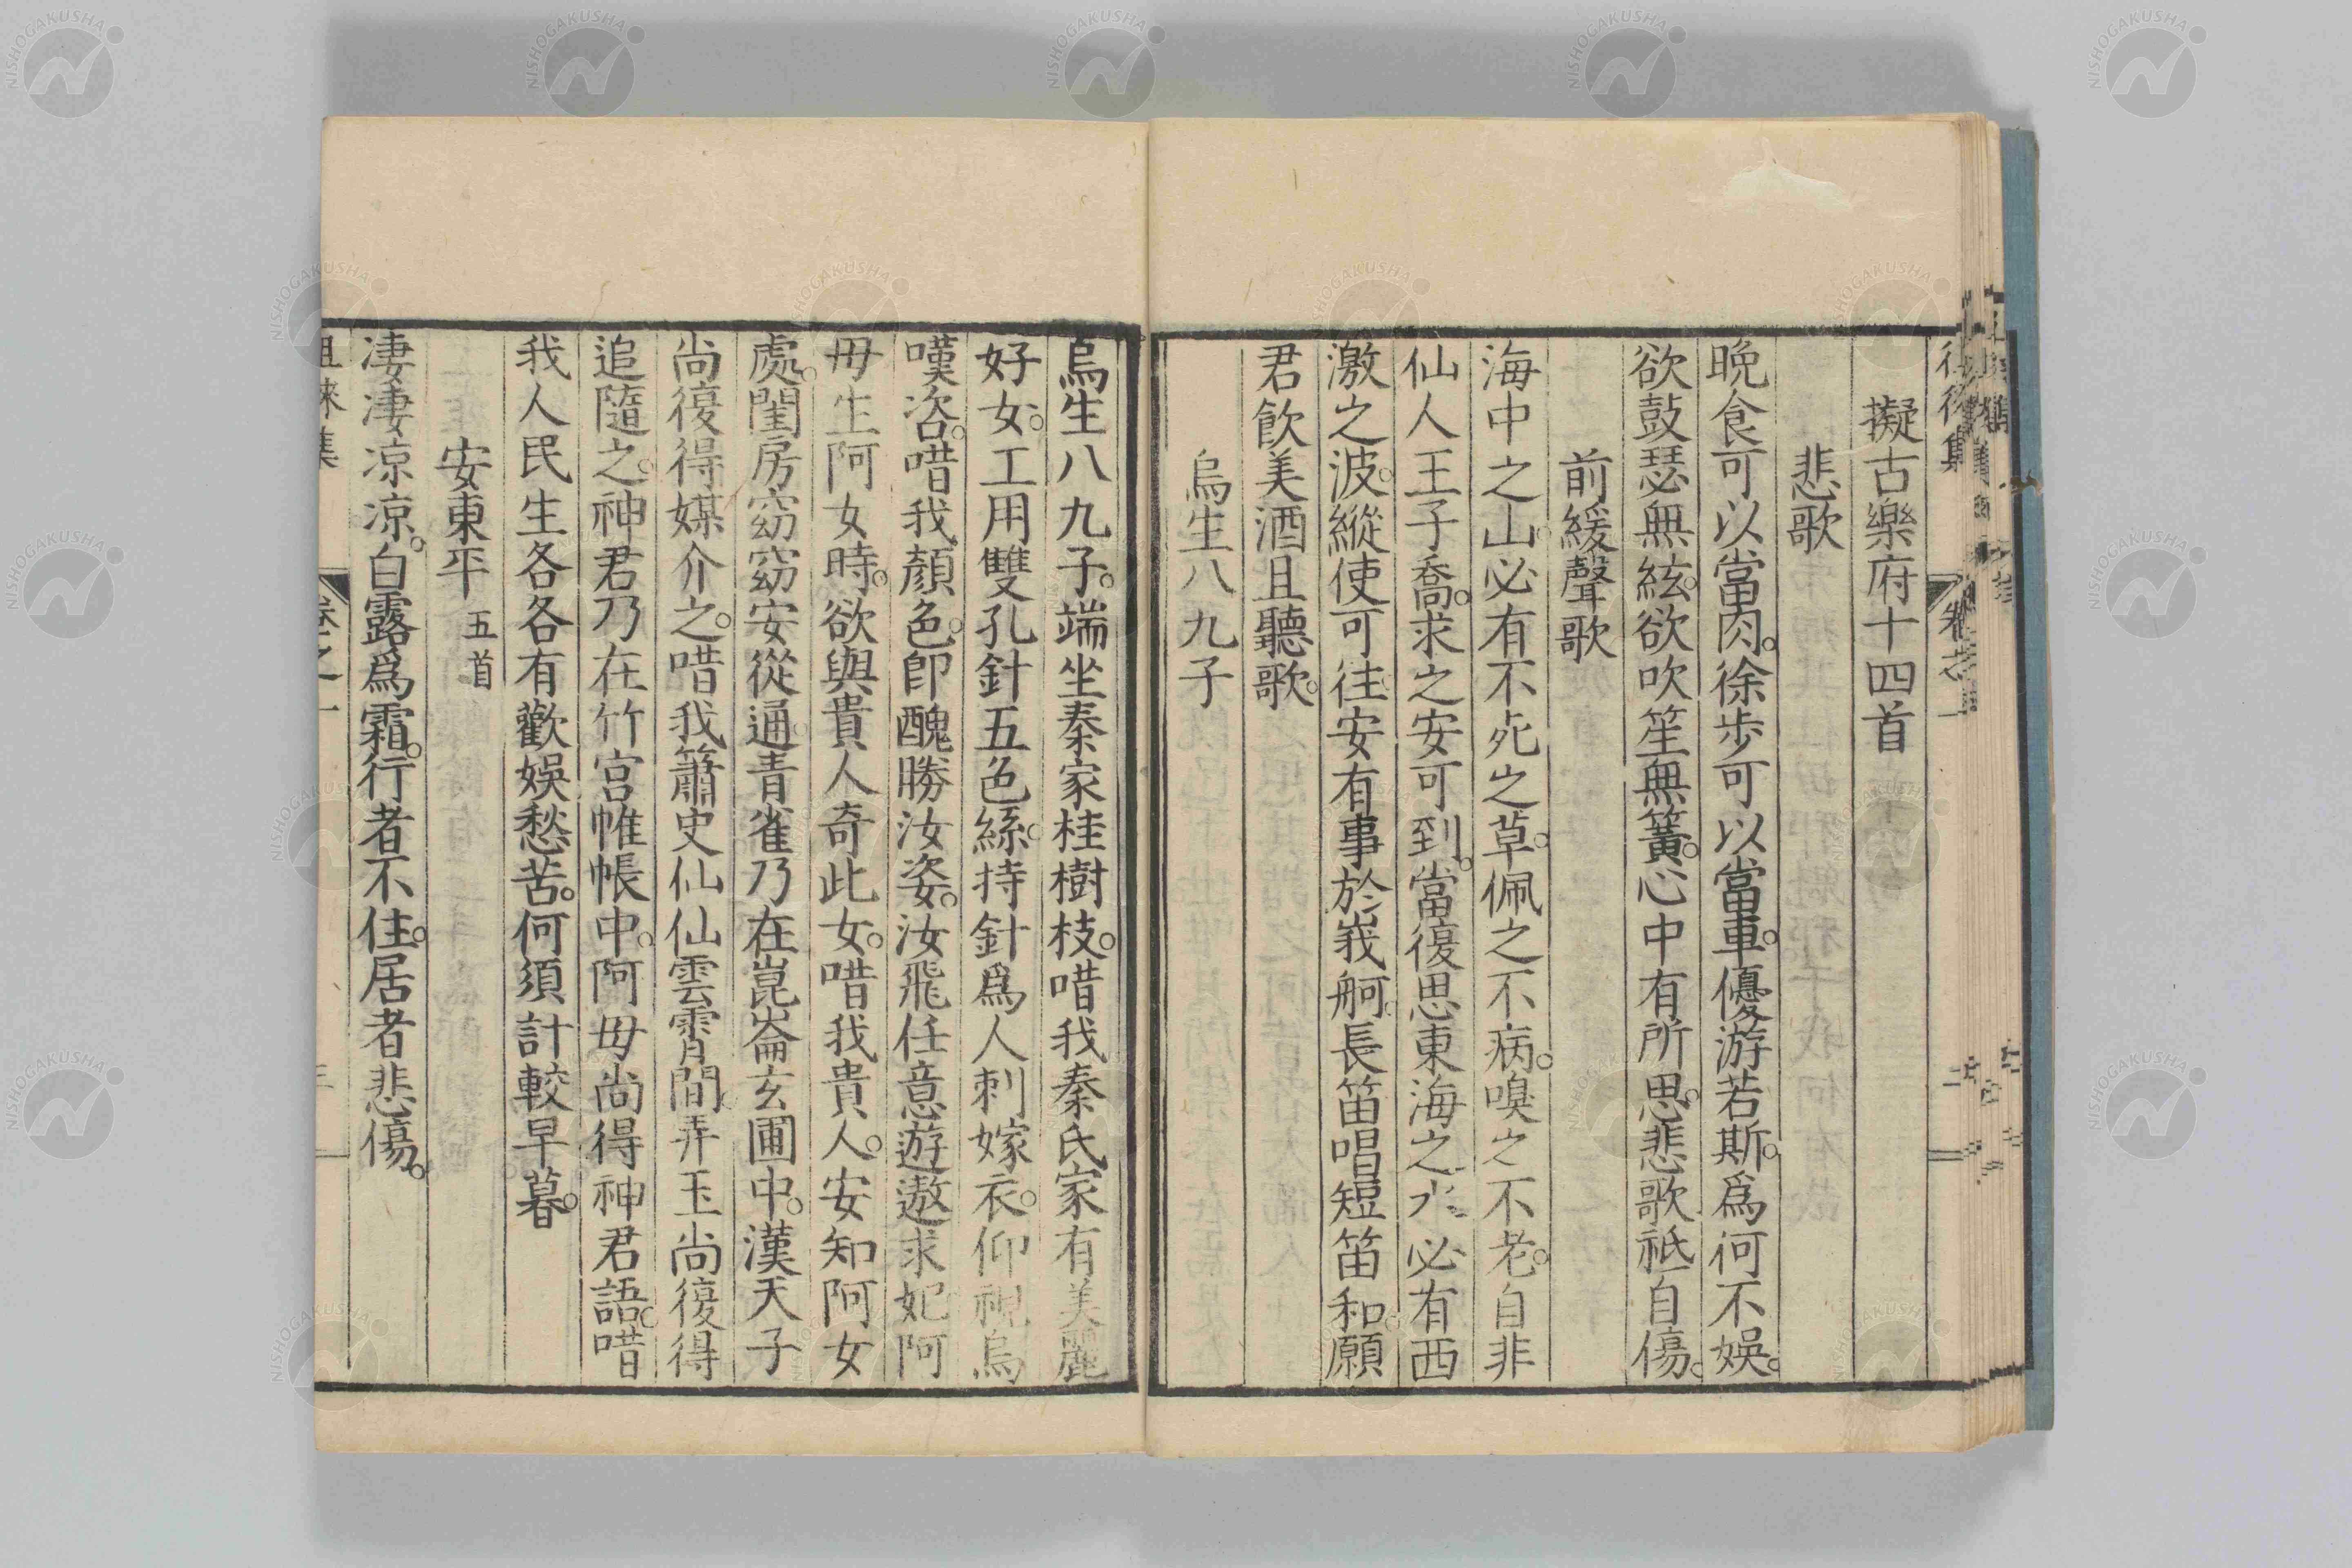 擬古樂府十四首
悲歌
晩食可以當肉。徐步可以當車。優游若斯。爲何不娯。
欲鼓瑟無絃。欲吹笙無簧。心中有所思。悲歌祇自傷。
前緩聲歌
海中之山必有不死之草。佩之不病。嗅之不老。自非
仙人王子喬。求之安可到。當復思東海之水必有西
激之波。縱使可往安有事於峩舸。長笛唱短笛和願
君飮美酒且聽歌。
烏生八九子
烏生八九子。端坐秦家桂樹枝。唶我秦氏家有美麗
好女。工用雙孔針五色絲。持針爲人刺嫁衣。仰視烏
嘆咨。唶我顏色。卽醜勝汝姿。汝飛任意遊遨求妃阿
毋生阿女時。欲與貴人奇此女。唶我貴人。安知阿女
處。閨房窈窈安從通。青雀乃在崑崙玄圃中。漢天子
尚復得媒介之。唶我簫史仙仙雲霄間。弄玉尚復得
追隨之。神君乃在竹宮帷帳中。阿毋尚得神君語。唶
我人民生各各有歡娯愁苦。何須計較早暮。
安東平 五首
凄凄凉凉。白露爲霜。行者不住。居者悲傷。
徂徠集 卷之一